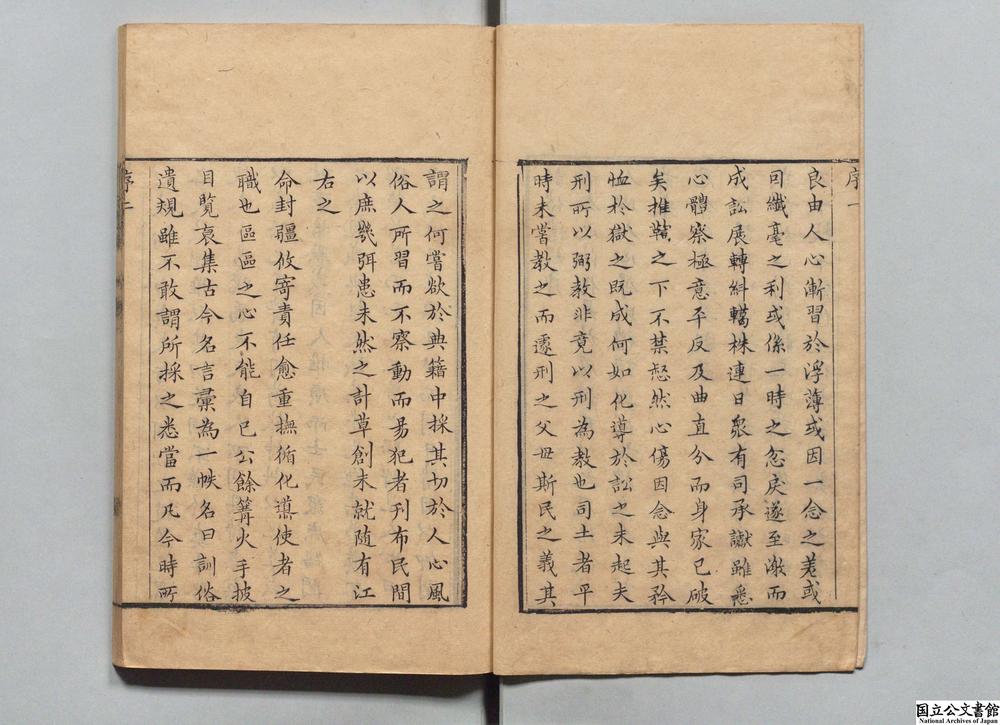 序一
良由人心漸習於浮薄或因一念之差或
司纖毫之利或係一時之忿戾遂至激而
成訟展轉糾轕株連日衆有司承讞雖悉
心體察極意平反及曲直分而身家已破
矣推鞫之下不禁惄然心傷因念與其矜
恤於獄之既成何如化導於訟之未起夫
刑所以弼教非竟以刑為教也司土者平
時未嘗教之而遽刑之父母斯民之義其
謂之何嘗欲於典籍中採其切於人心風
俗人所習而不察動而易犯者刊布民間
以庶幾弭患未然之計草創未就随有江
右之
命封疆攸寄責任愈重撫循化導使者之
職也區區之心不能自已公餘篝火手披
目覧裒集古今名言彙為一帙名曰訓俗
遺規雖不敢謂所採之悉當而凡今時所
序二
国立公文書館
National Archives of Japan